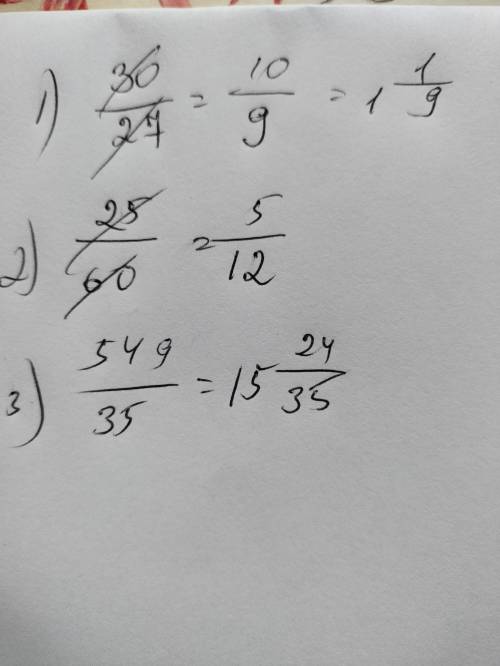 1) 30/27 = 10/9 = 1 1/9
2) 25/60 = 5/12
3) 549/35 = 15 24/35